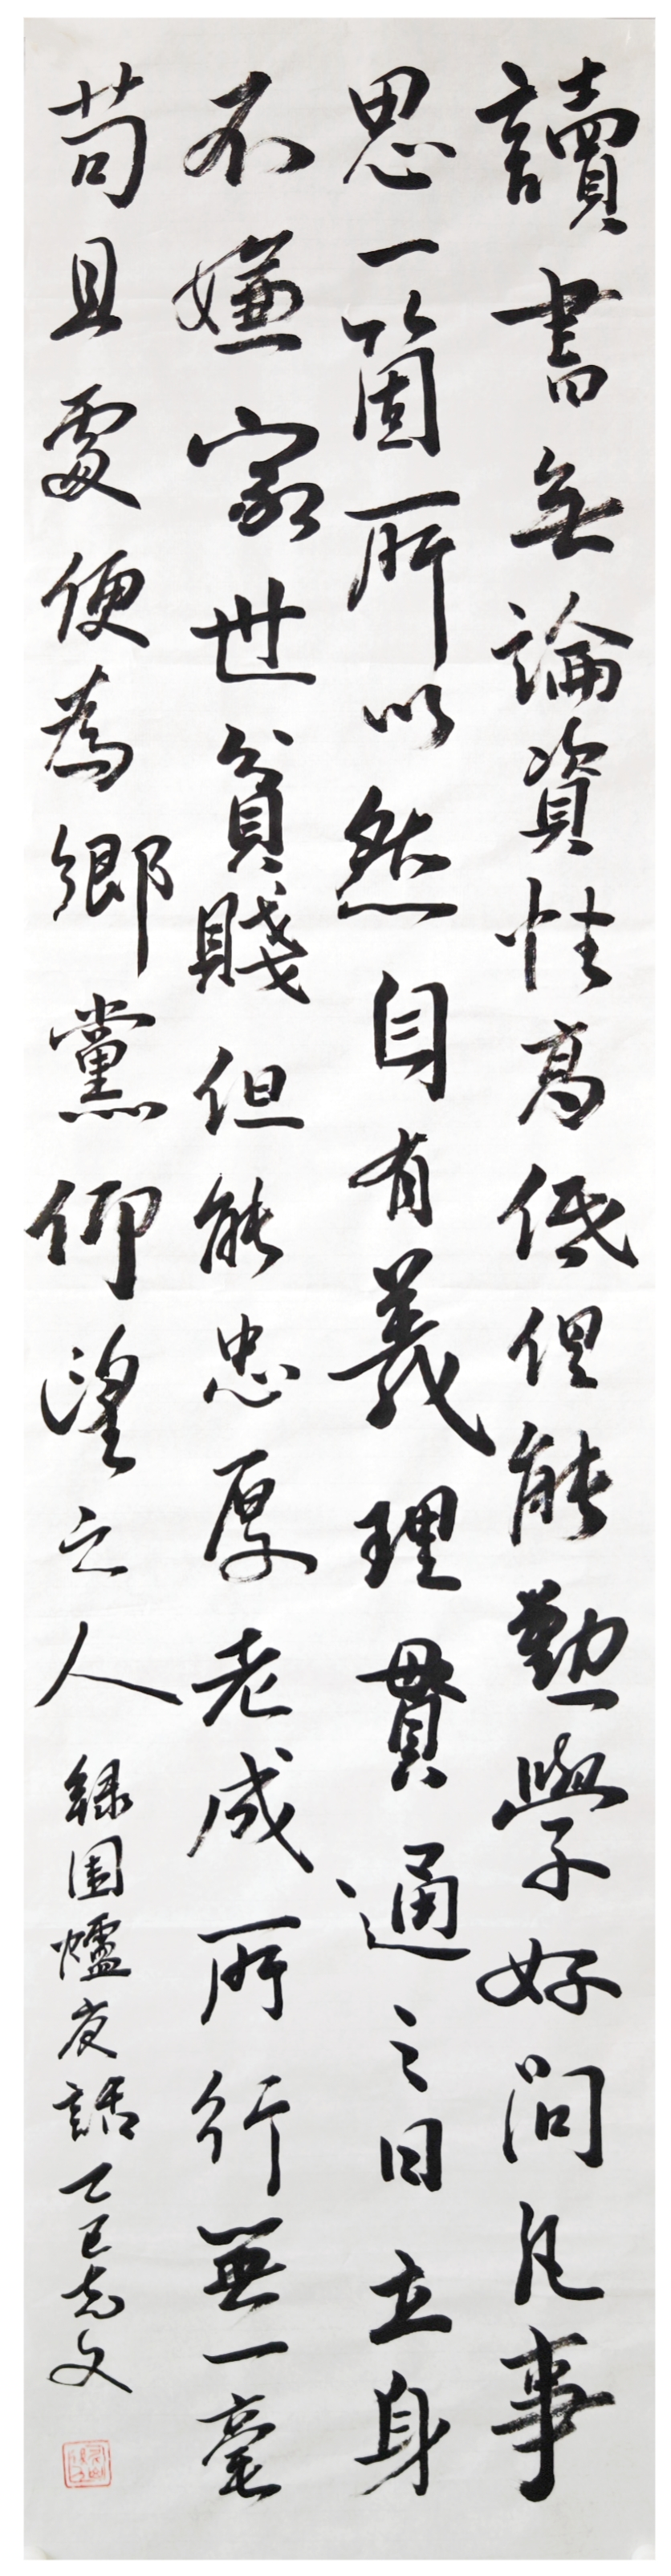 讀書無論資性高低但能勤學好問凡事
思一箇所以然自有義理貫通之日立身
不嫌家世貧賤但能忠厚老成所行無一毫
苟且處便為鄉黨仰望之人
錄圍爐夜話乙巳志文